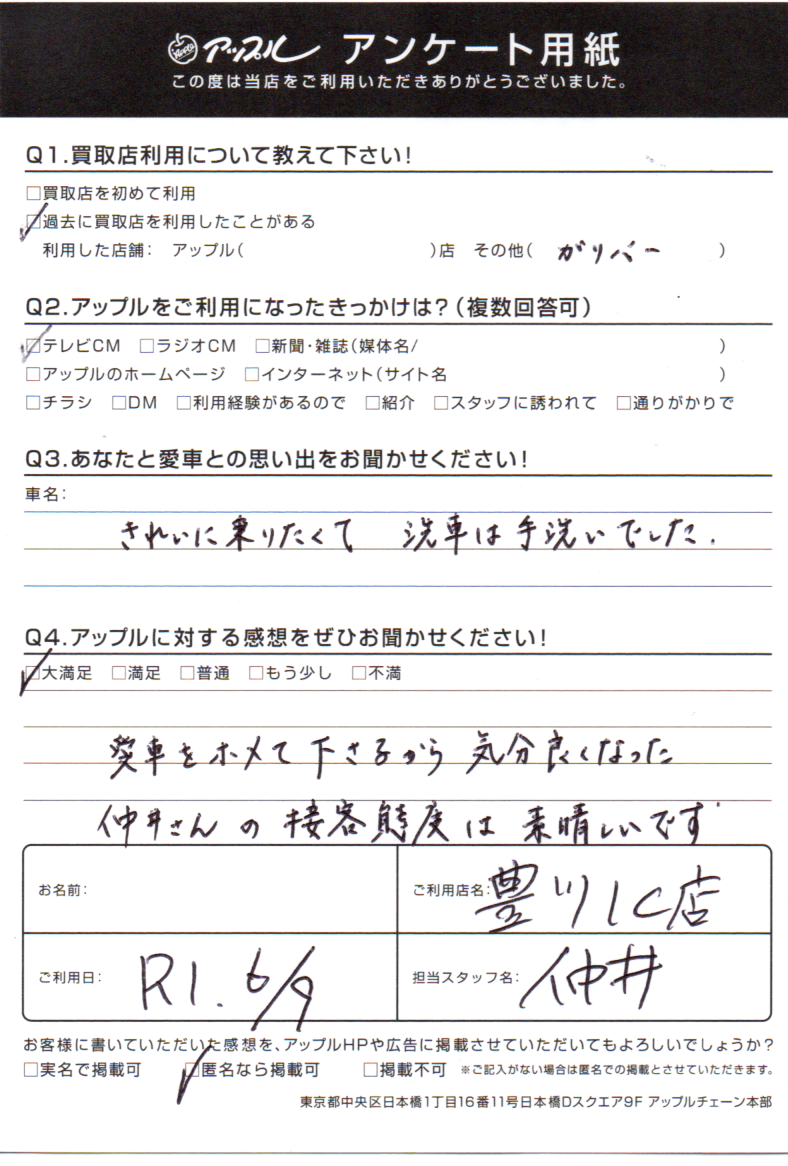 Apple アップル アンケート用紙
この度は当店をご利用いただきありがとうございました。
Q1.買取店利用について教えて下さい!
□買取店を初めて利用
☑過去に買取店を利用したことがある
利用した店舗： アップル( )店 その他( ガリバー )
Q2.アップルをご利用になったきっかけは?(複数回答可)
☑テレビCM □ラジオCM □新聞・雑誌(媒体名/ )
□アップルのホームページ □インターネット(サイト名 )
□チラシ □DM □利用経験があるので □紹介 □スタッフに誘われて □通りがかりで
Q3.あなたと愛車との思い出をお聞かせください!
車名：
きれいに乗りたくて 洗車は手洗いでした.
Q4.アップルに対する感想をぜひお聞かせください!
☑大満足 □満足 □普通 □もう少し □不満
愛車をホメて下さるから 気分良くなった
仲井さんの接客態度は素晴しいです
お名前： ご利用店名： 豊川IC店
ご利用日： R1. 6/9 担当スタッフ名： 仲井
お客様に書いていただいた感想を、アップルHPや広告に掲載させていただいてもよろしいでしょうか?
□実名で掲載可 ☑匿名なら掲載可 □掲載不可 ※ご記入がない場合は匿名での掲載とさせていただきます。
東京都中央区日本橋1丁目16番11号日本橋Dスクエア9F アップルチェーン本部